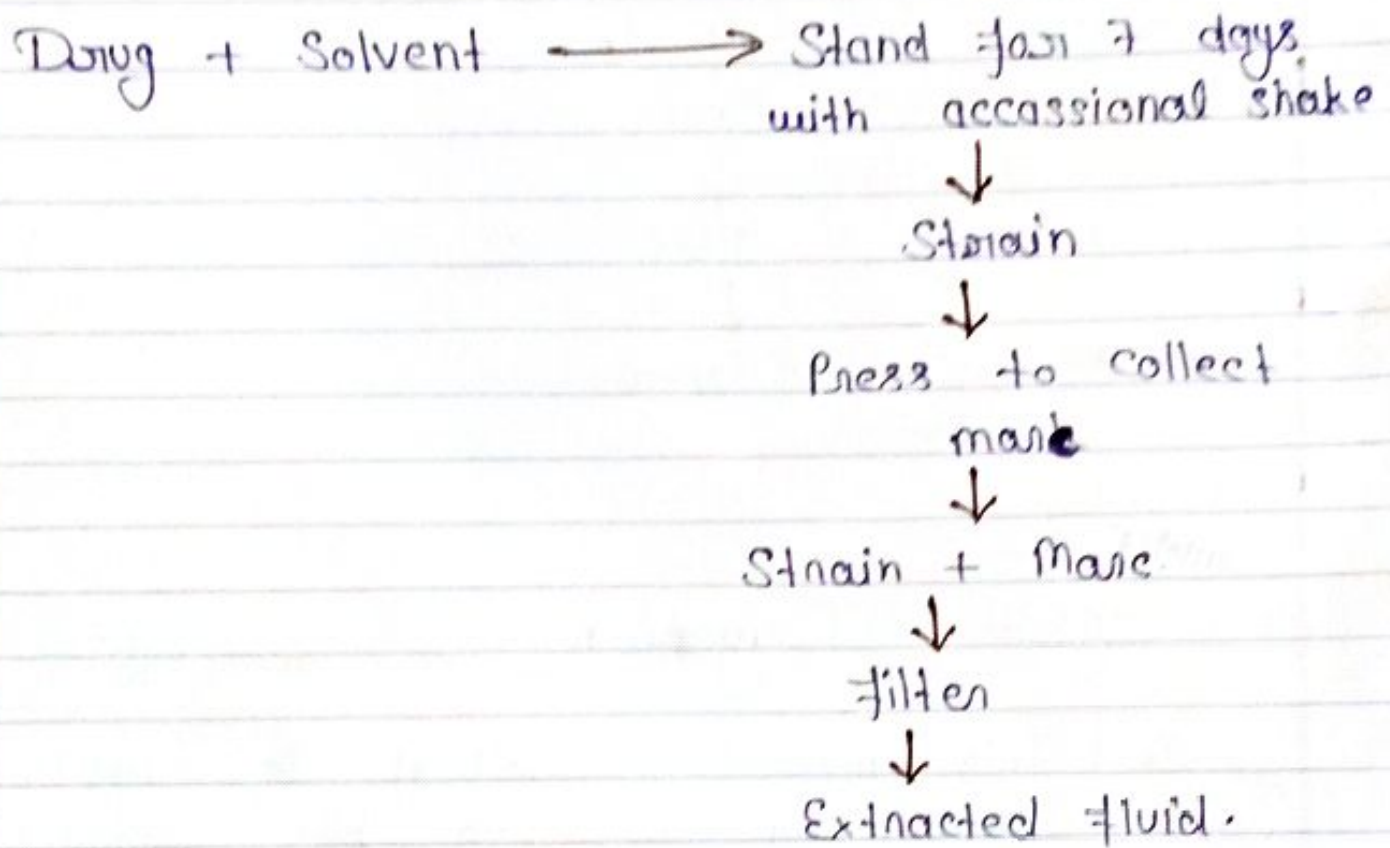 Drug + Solvent → Stand for 7 days
with accassional shake
↓
Strain
↓
Press to collect
marc
↓
Strain + Marc
↓
Filter
↓
Extracted fluid.